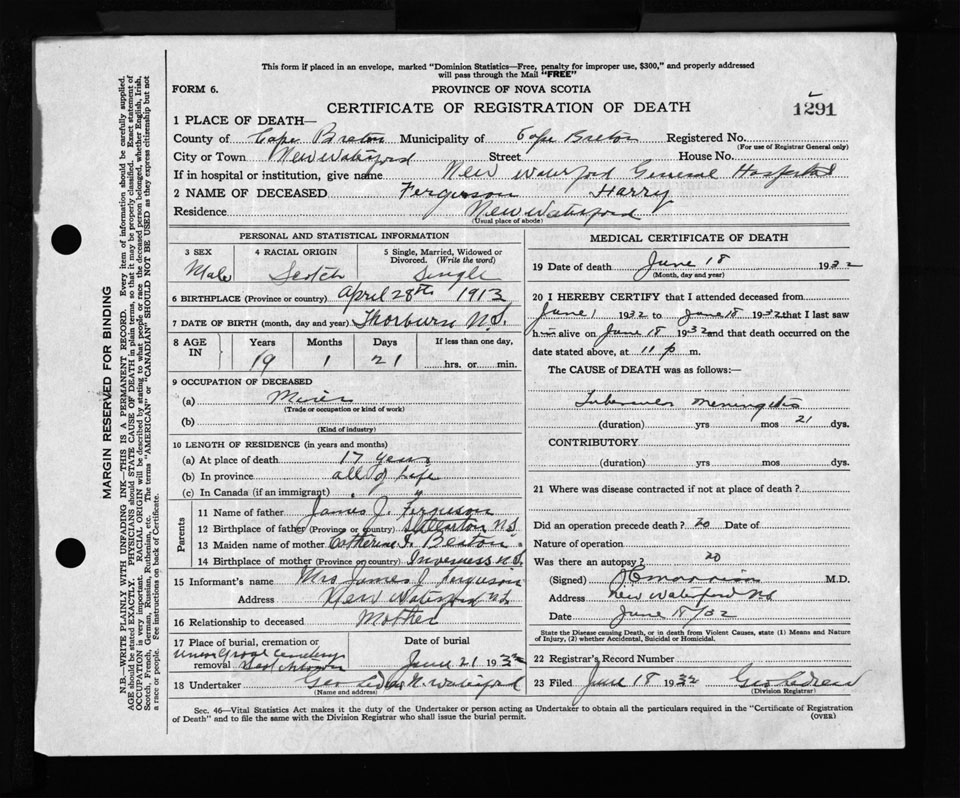 This form if placed in an envelope, marked "Dominion Statistics—Free, penalty for improper use, $300," and properly addressed
will pass through the Mail "FREE"
FORM 6. PROVINCE OF NOVA SCOTIA
CERTIFICATE OF REGISTRATION OF DEATH 1291
1 PLACE OF DEATH—
County of Cape Breton Municipality of Cape Breton Registered No.
(For use of Registrar General only)
City or Town New Waterford Street House No.
If in hospital or institution, give name New Waterford General Hospital
2 NAME OF DECEASED Ferguson Harry
Residence New Waterford
(Usual place of abode)
PERSONAL AND STATISTICAL INFORMATION
3 SEX 4 RACIAL ORIGIN 5 Single, Married, Widowed or
Divorced. (Write the word)
Male Scotch Single
6 BIRTHPLACE (Province or country) April 28th 1913
7 DATE OF BIRTH (month, day and year) Thorburn N.S.
8 AGE IN Years Months Days If less than one day,
19 1 21 hrs. or min.
9 OCCUPATION OF DECEASED
(a) Miner
(Trade or occupation or kind of work)
(b)
(Kind of industry)
10 LENGTH OF RESIDENCE (in years and months)
(a) At place of death 17 years
(b) In province all of life
(c) In Canada (if an immigrant) " "
Parents
11 Name of father James J. Ferguson
12 Birthplace of father (Province or country) Stellarton N.S.
13 Maiden name of mother Catherine Beaton
14 Birthplace of mother (Province or country) Inverness N.S.
15 Informant's name Mrs James J Ferguson
Address New Waterford N.S.
16 Relationship to deceased Mother
17 Place of burial, cremation or Date of burial
Union Grove Cemetery
removal June 21 1932
18 Undertaker Geo N. Waterford
(Name and address)
MEDICAL CERTIFICATE OF DEATH
19 Date of death June 18 1932
(Month, day and year)
20 I HEREBY CERTIFY that I attended deceased from
June 1 1932 to June 18 1932 that I last saw
him alive on June 18 1932 and that death occurred on
date stated above, at 11 p m.
The CAUSE of DEATH was as follows:—
Tubercular meningitis
(duration) yrs mos 21 dys.
CONTRIBUTORY
(duration) yrs. mos. dys.
21 Where was disease contracted if not at place of death?
Did an operation precede death? no Date of
Nature of operation
Was there an autopsy? no
(Signed) M.D.
Address New Waterford NS
Date June 18/32
State the Disease causing Death, or in death from Violent Causes, state (1) Means and Nature
of Injury, (2) whether Accidental, Suicidal or Homicidal.
22 Registrar's Record Number
23 Filed June 18 1932 Geo Ledrew
(Division Registrar)
Sec. 46—Vital Statistics Act makes it the duty of the Undertaker or person acting as Undertaker to obtain all the particulars required in the "Certificate of Registration
of Death" and to file the same with the Division Registrar who shall issue the burial permit. (OVER)
MARGIN RESERVED FOR BINDING
N.B.—WRITE PLAINLY WITH UNFADING INK—THIS IS A PERMANENT RECORD. Every item of information should be carefully supplied.
AGE should be stated EXACTLY. PHYSICIANS should STATE CAUSE OF DEATH in plain terms, so that it may be properly classified. Exact statement of
OCCUPATION is very important. RACIAL ORIGIN will be described by stating to what people or race the deceased person belonged, whether English, Irish,
Scotch, French, German, Russian, Ruthenian, etc. The terms "AMERICAN" or "CANADIAN" SHOULD NOT BE USED as they express citizenship but not
a race or people. See instructions on back of Certificate.